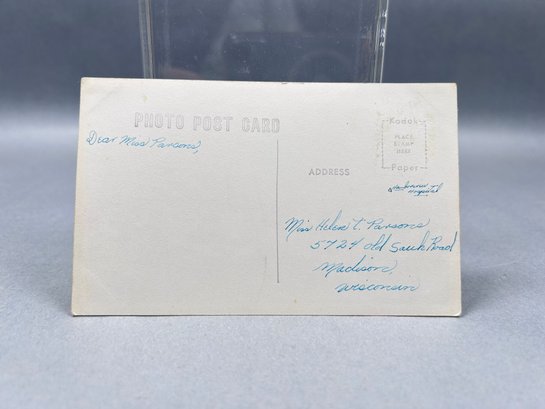 PHOTO POST CARD
Dear Miss Parsons,
Kodak
PLACE
STAMP
HERE
Paper
ADDRESS
Hospital
Miss Helen T. Parsons
5724 Old Sauk Road
Madison,
Wisconsin